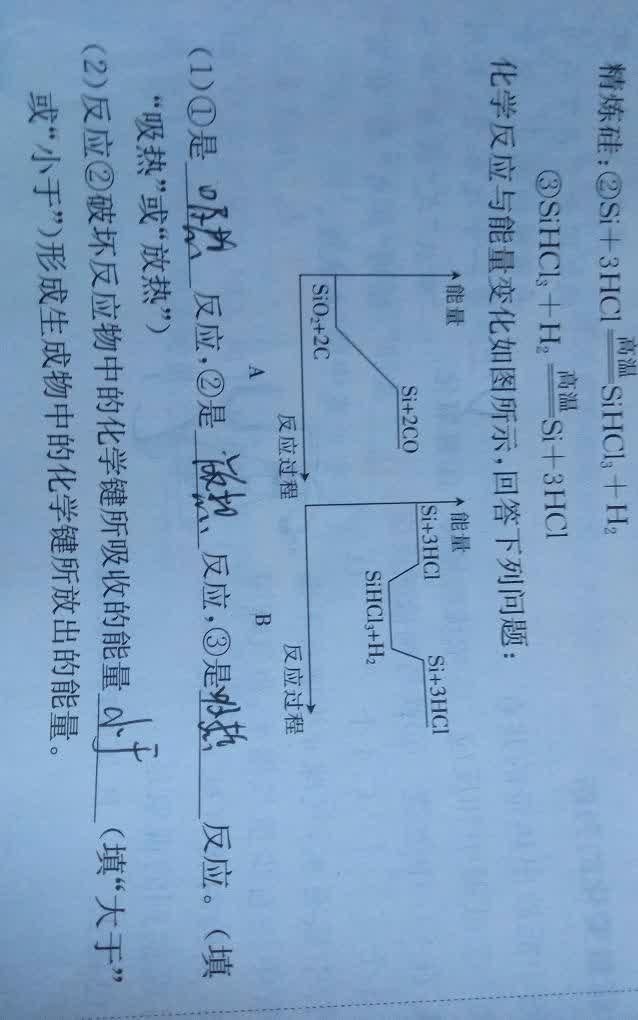 精炼硅:②Si+3HCl 高温 SiHCl₃+H₂
③SiHCl₃+H₂ 高温 Si+3HCl
化学反应与能量变化如图所示,回答下列问题:
能量
Si+2CO
SiO₂+2C
反应过程
A
能量
Si+3HCl
SiHCl₃+H₂
Si+3HCl
反应过程
B
(1)①是 吸热 反应,②是 放热 反应,③是 吸热 反应。(填
“吸热”或“放热”)
(2)反应②破坏反应物中的化学键所吸收的能量 小于 (填“大于”
或“小于”)形成生成物中的化学键所放出的能量。